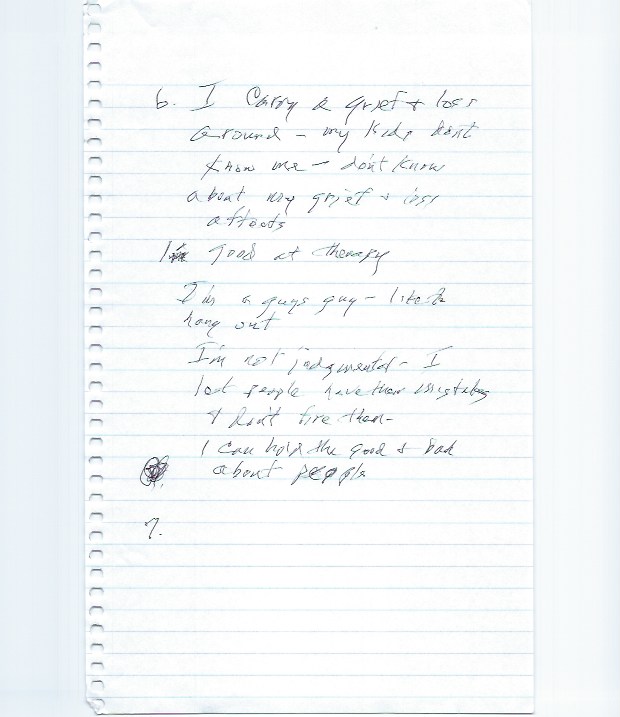 6. I carry a grief + loss
around - my kids don't
know me - don't know
about my grief + loss
affects
I'm good at therapy
I'm a guys guy - like to
hang out
I'm not judgmental - I
let people have their mistakes
+ don't fire them -
I can hold the good + bad
about people
7.